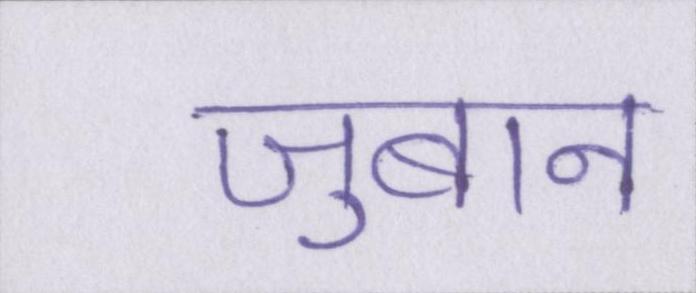 जुबान